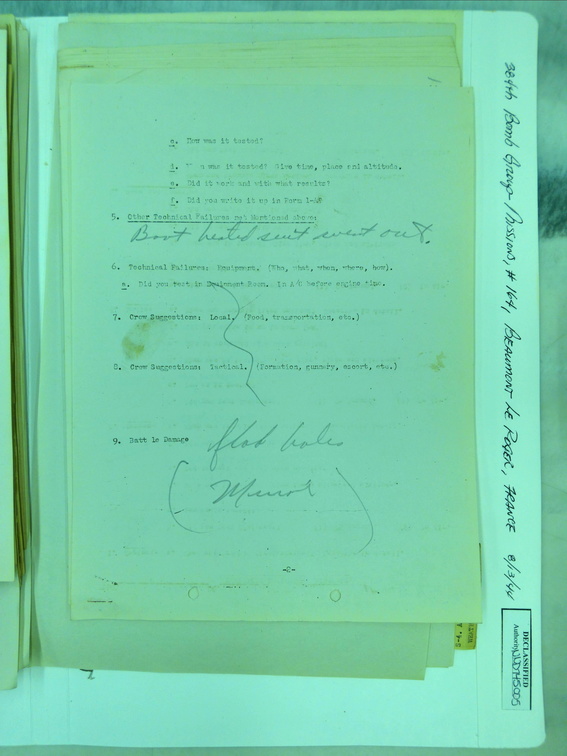 c. How was it tested?
d. was it tested? Give time, place and altitude.
e. Did it work and with what results?
f. Did you write it up in Form 1-A?
5. Other Technical Failures not Mentioned above:
Boot heated suit went out.
6. Technical Failures: Equipment. (Who, what, when, where, how).
a. Did you test in Equipment Room. In A/C before engine time.
7. Crew Suggestions: Local. (Food, transportation, etc.)
8. Crew Suggestions: Tactical. (Formation, gunnery, escort, etc.)
9. Battle Damage flak holes
(Minor)
-2-
384th Bomb Group Missions, # 164, BEAUMONT LE ROGER, FRANCE 8/13/44
DECLASSIFIED
Authority NND745005